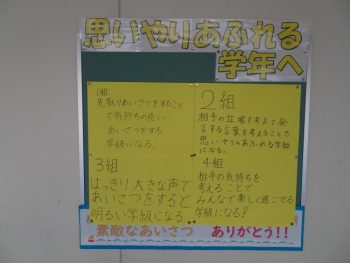 思いやりあふれる
学年へ
1組
先取りあいさつをすること
で気持ちの良い
あいさつをする
学級になる。
2組
相手の立場を考えて発
言する言葉を考えることで
思いやりのあふれる学級
になる。
3組
はっきり大きな声で
あいさつをすると
明るい学級になる
4組
相手の気持ちを
考えることで
みんなで楽しく過ごせる
学級になる!
素敵なあいさつ ありがとう!!